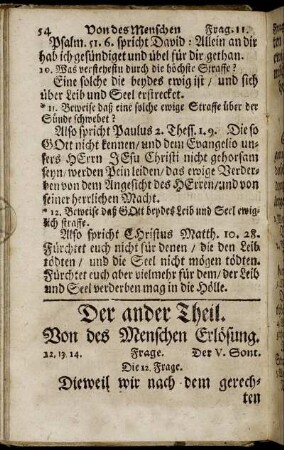 54 Von des Menschen Frag. 11.
Psalm. 51. 6. spricht David: Allein an dir
hab ich gesündiget und übel für dir gethan.
10. Was verstehestu durch die höchste Straffe?
Eine solche die beydes ewig ist / und sich
über Leib und Seel erstrecket.
* 11. Beweise daß eine solche ewige Straffe über der
Sünde schwebet?
Also spricht Paulus 2. Thess. 1. 9. Die so
GOtt nicht kennen / und dem Evangelio un-
sers HErrn JEsu Christi nicht gehorsam
seyn / werden Pein leiden / das ewige Verder-
ben von dem Angesicht des HErren / und von
seiner herrlichen Macht.
* 12. Beweise daß GOtt beydes Leib und Seel ewig-
lich straffe.
Also spricht CHristus Matth. 10. 28.
Fürchtet euch nicht für denen / die den Leib
tödten / und die Seel nicht mögen tödten.
Fürchtet euch aber vielmehr für dem / der Leib
und Seel verderben mag in die Hölle.
Der ander Theil.
Von des Menschen Erlösung.
12. 13. 14. Frage. Der V. Sont.
Die 12. Frage.
Dieweil wir nach dem gerech-
ten